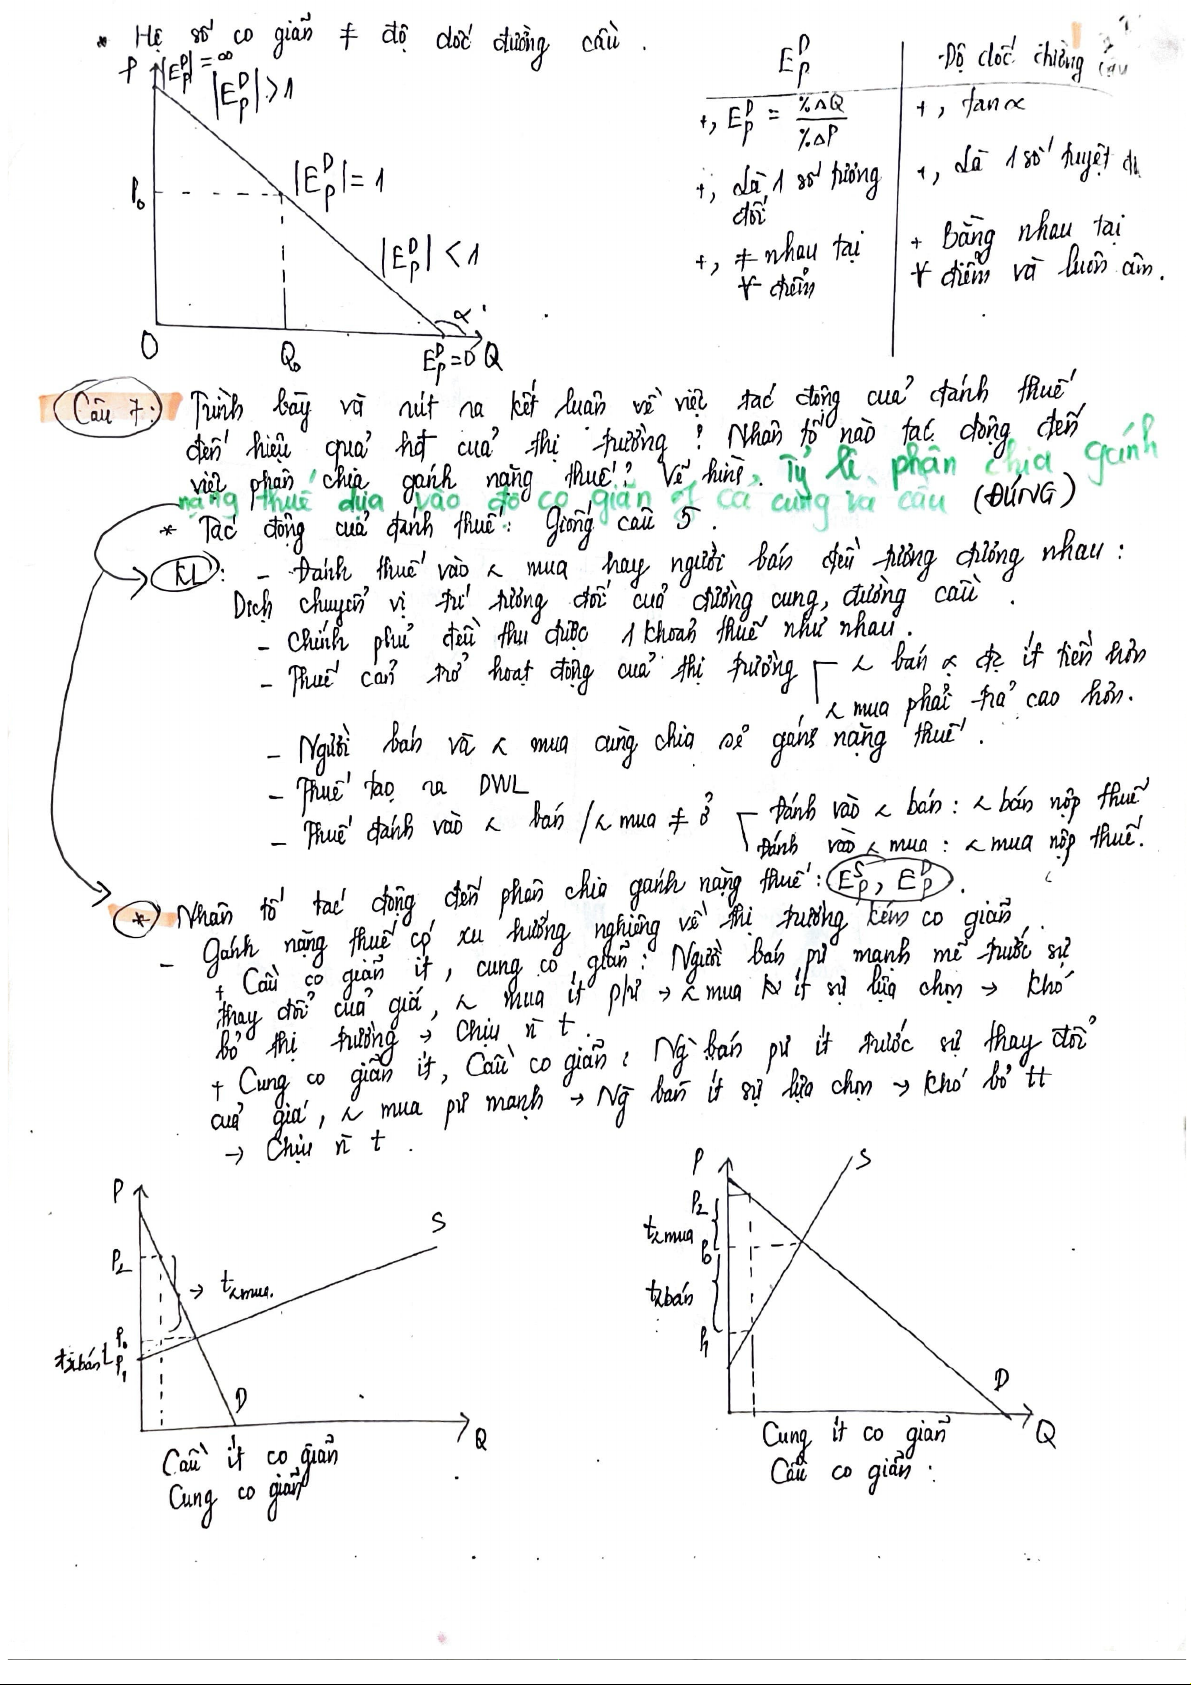 * Hệ số co giãn ≠ độ dốc đường cầu.
P
|E^D_P| = ∞
|E^D_P| > 1
P₀
|E^D_P| = 1
|E^D_P| < 1
α
O
Q₀
E^D_P = 0
Q
E^D_P
Độ dốc đường cầu
+, E^D_P = %ΔQ / %ΔP
+, tanα
+, Là 1 số tương
đối
+, Là 1 số tuyệt đ
+, ≠ nhau tại
∀ điểm
+ Bằng nhau tại
∀ điểm và luôn âm.
Câu 7: Trình bày và rút ra kết luận về việc tác động của đánh thuế
đến hiệu quả hđ của thị trường? Nhân tố nào tác động đến
việc phân chia gánh nặng thuế? Vẽ hình. Tỷ lệ phân chia gánh
nặng thuế dựa vào độ co giãn of cả cung và cầu (ĐÚNG)
* Tác động của đánh thuế: Giống câu 5.
KL: - Đánh thuế vào < mua hay người bán đều tương đương nhau:
Dịch chuyển vị trí tương đối của đường cung, đường cầu.
- Chính phủ đều thu được 1 khoản thuế như nhau.
- Thuế cản trở hoạt động của thị trường
< bán α đc ít tiền hơn
< mua phải trả cao hơn.
- Người bán và < mua cùng chia sẻ gánh nặng thuế.
- Thuế tạo ra DWL
- Thuế đánh vào < bán / < mua ≠ ở
Đánh vào < bán: < bán nộp thuế
Đánh vào < mua: < mua nộp thuế.
* Nhân tố tác động đến phân chia gánh nặng thuế: E^S_P, E^D_P.
- Gánh nặng thuế có xu hướng nghiêng về thị trường kém co giãn.
+ Cầu co giãn ít, cung co giãn: Người bán pư mạnh mẽ trước sự
thay đổi của giá, < mua ít phư → < mua ít sự lựa chọn → khó
bỏ thị trường → Chịu n̄ t.
+ Cung co giãn ít, Cầu co giãn: Ng̀ bán pư ít trước sự thay đổi
của giá, < mua pư mạnh → Ng̀ bán ít sự lựa chọn → khó bỏ tt
→ Chịu n̄ t.
P
S
P₂
→ t< mua.
P₀
t< bán
P₁
D
Q
Cầu ít co giãn
Cung co giãn
P
S
P₂
t< mua
P₀
t< bán
P₁
D
Q
Cung ít co giãn
Cầu co giãn.